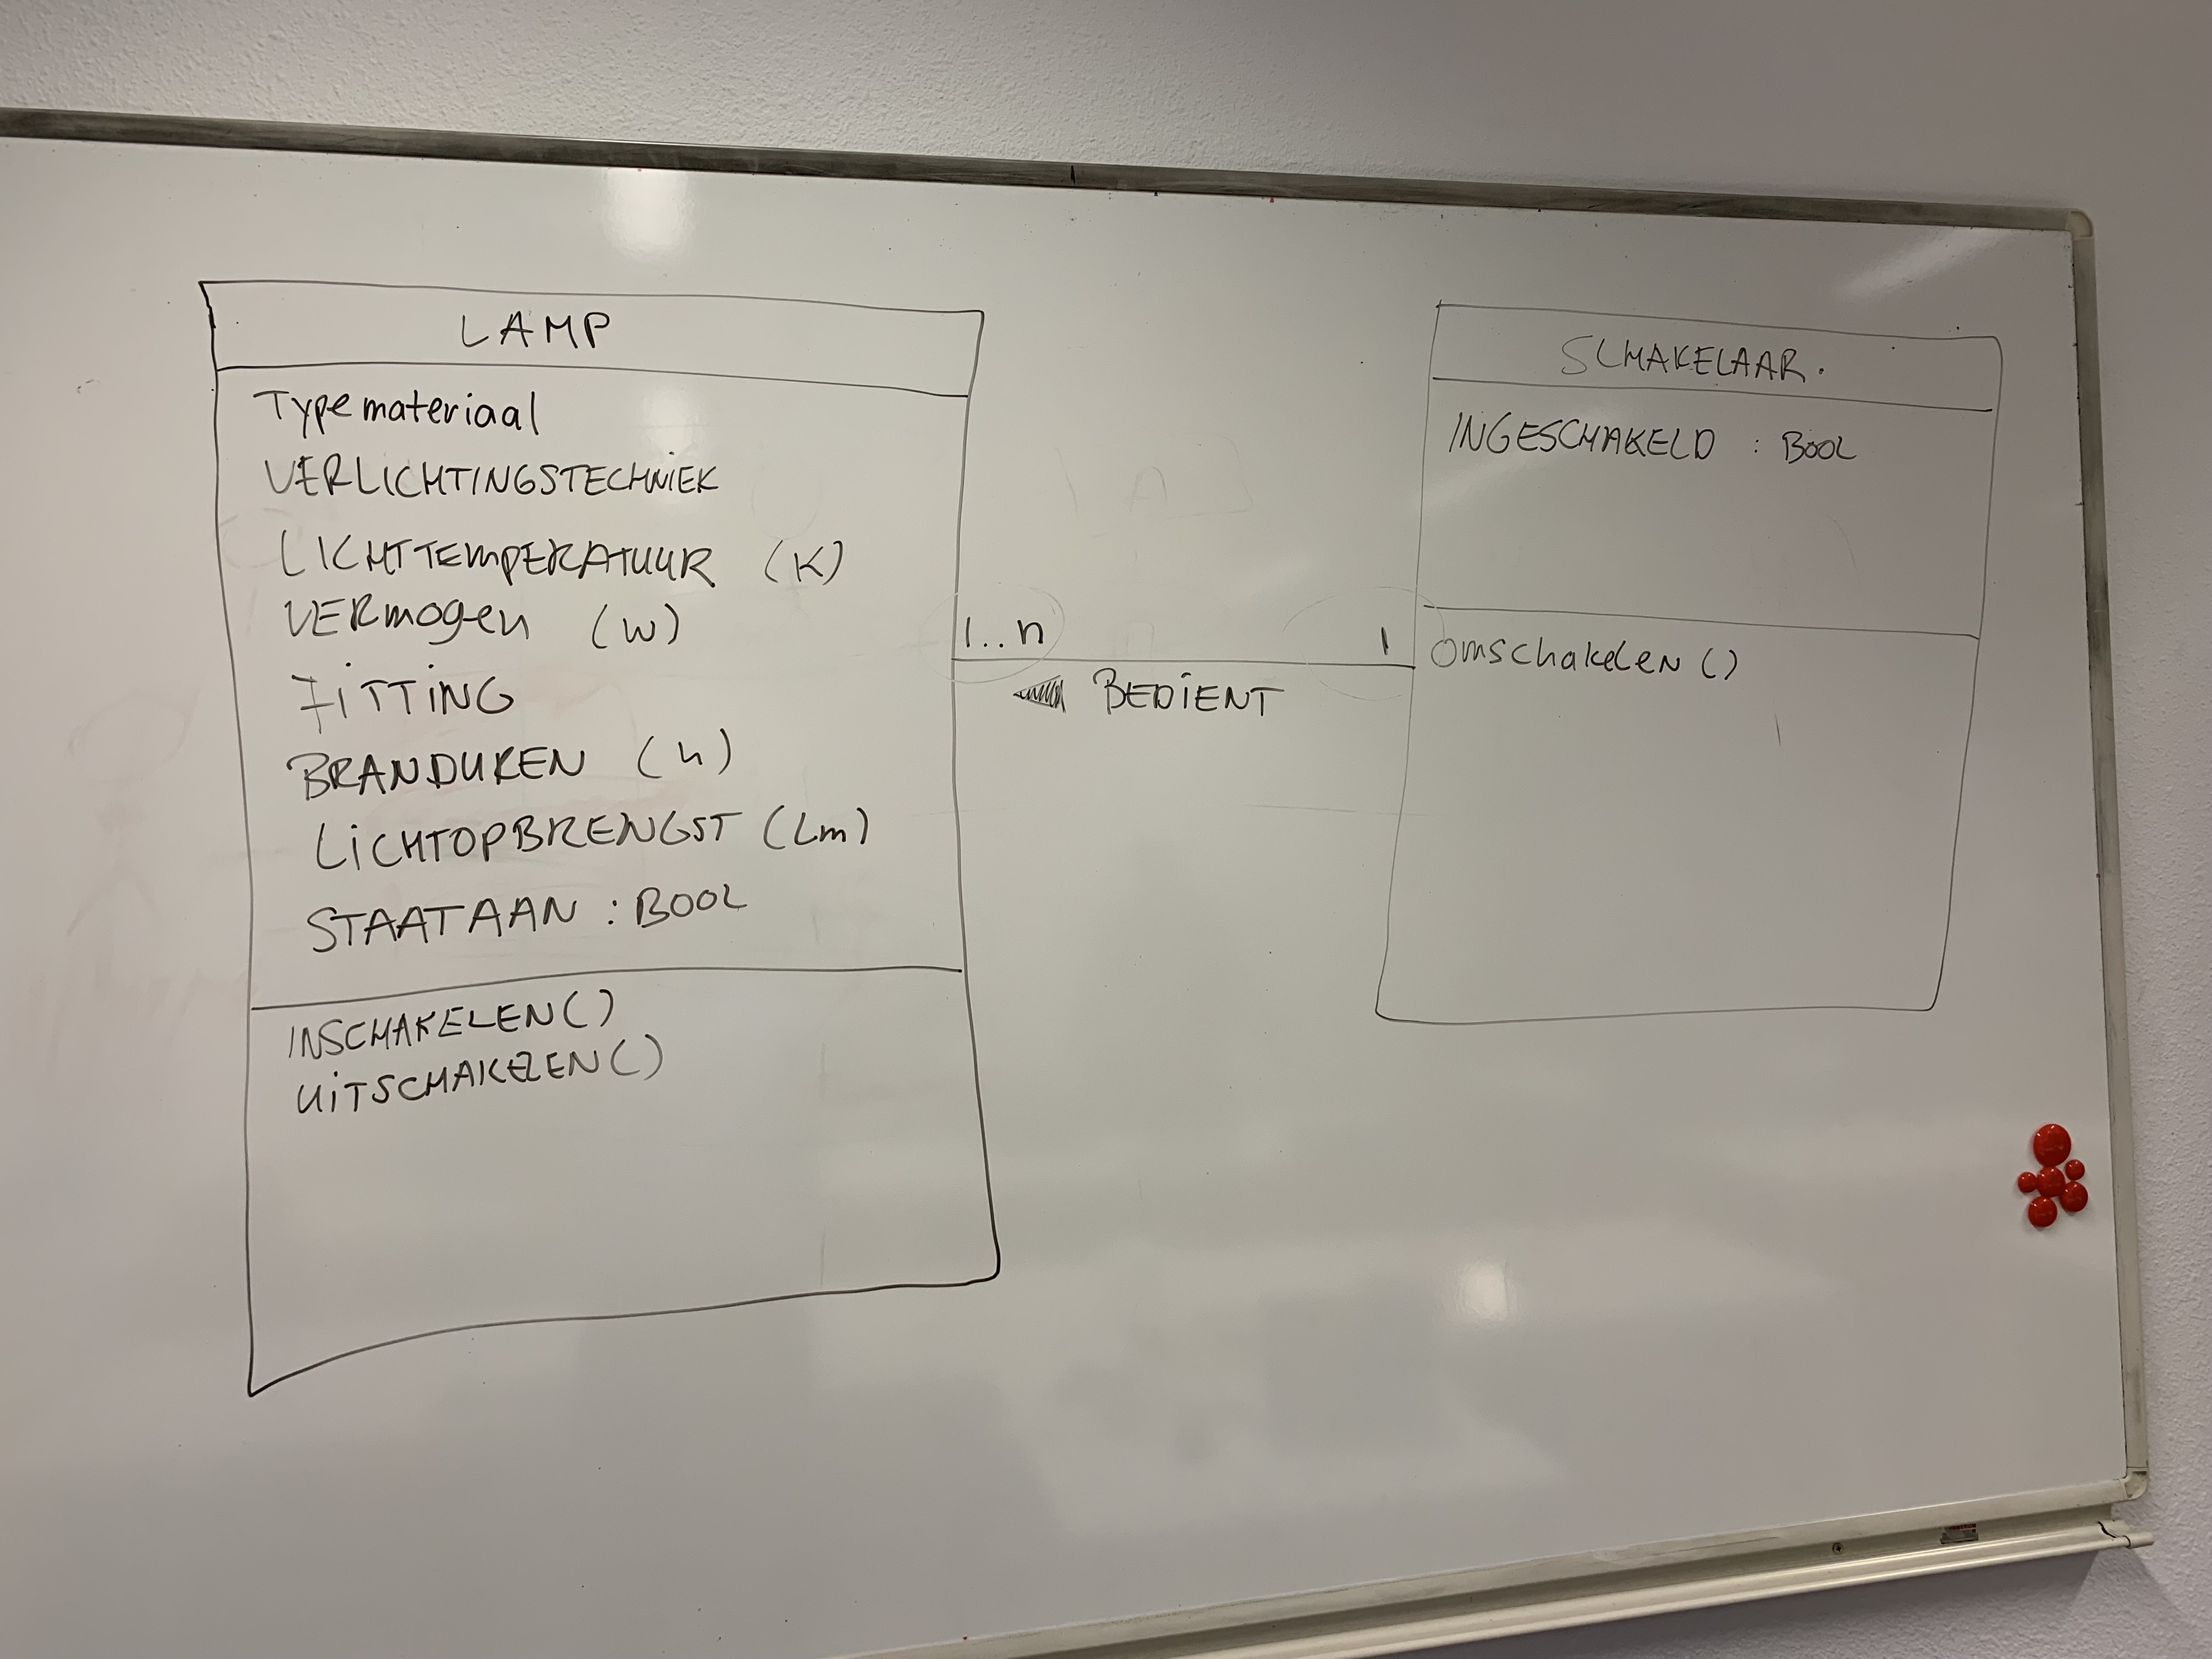 LAMP
Typemateriaal
VERLICHTINGSTECHNIEK
LICHTTEMPERATUUR (K)
VERmogen (W)
FITTING
BRANDUREN (h)
LICHTOPBRENGST (Lm)
STAATAAN : BOOL
INSCHAKELEN()
UITSCHAKELEN()
1..n
1
BEDIENT
SCHAKELAAR.
INGESCHAKELD : BOOL
omschakelen()